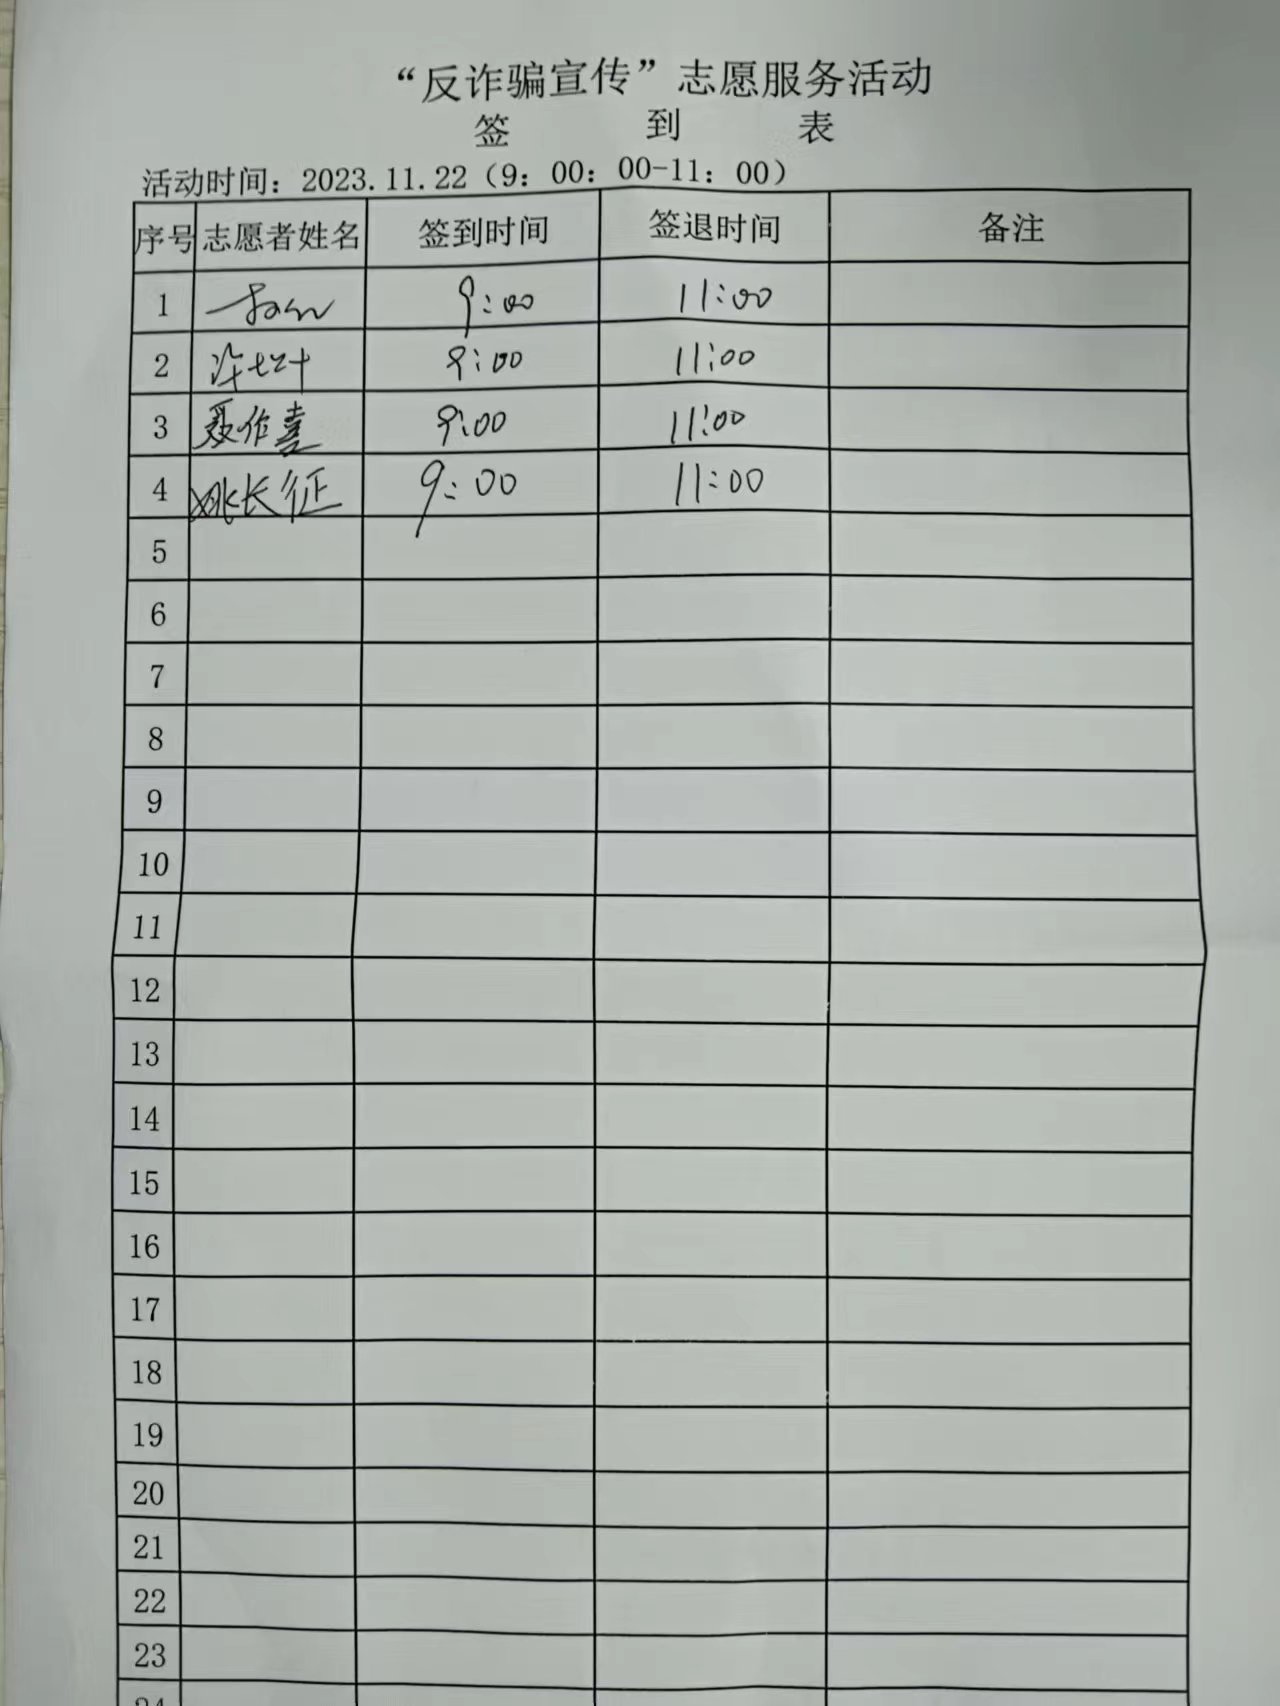 “反诈骗宣传”志愿服务活动
签 到 表
活动时间：2023.11.22（9：00：00-11：00）
序号 志愿者姓名 签到时间 签退时间 备注
1 9:00 11:00
2 9:00 11:00
3 聂作喜 9:00 11:00
4 姚长征 9:00 11:00
5
6
7
8
9
10
11
12
13
14
15
16
17
18
19
20
21
22
23
24